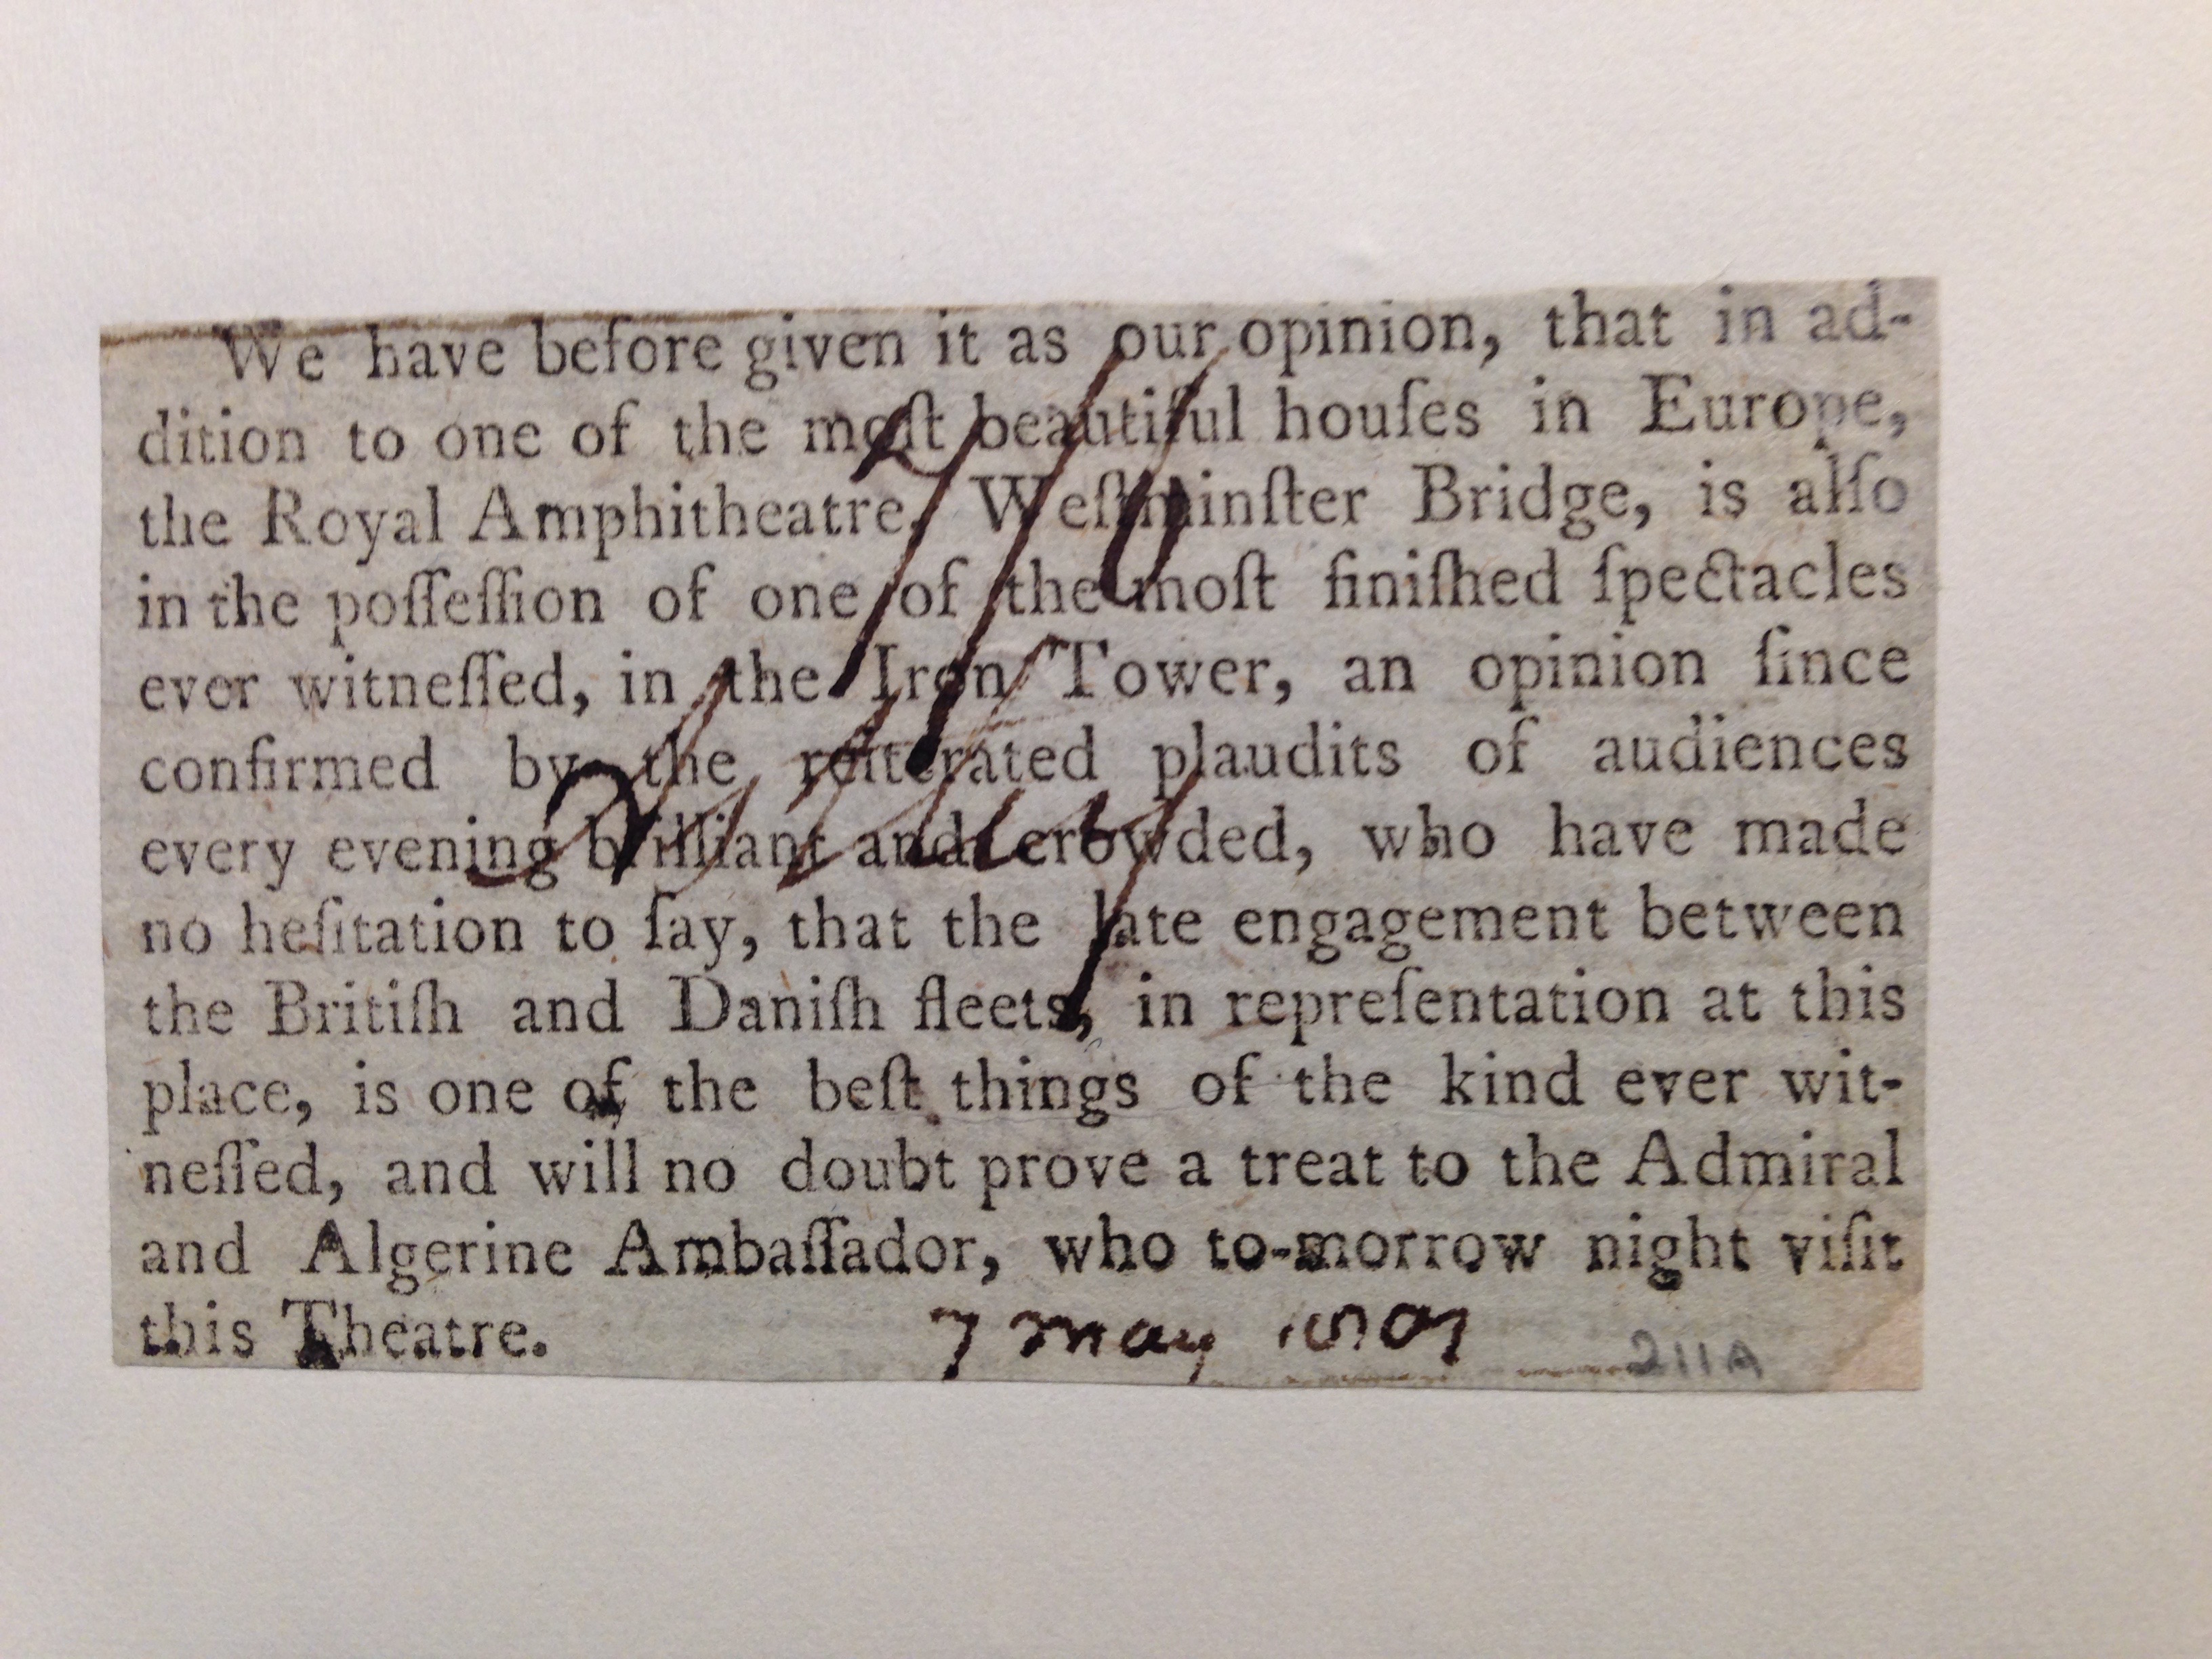 We have before given it as our opinion, that in ad-
dition to one of the moſt beautiful houſes in Europe,
the Royal Amphitheatre, Weſtminſter Bridge, is alſo
in the poſſeſſion of one of the moſt finiſhed ſpectacles
ever witneſſed, in the Iron Tower, an opinion ſince
confirmed by the reiterated plaudits of audiences
every evening brilliant and crowded, who have made
no heſitation to ſay, that the late engagement between
the Britiſh and Daniſh fleets, in repreſentation at this
place, is one of the beſt things of the kind ever wit-
neſſed, and will no doubt prove a treat to the Admiral
and Algerine Ambaſſador, who to-morrow night viſit
this Theatre.
7 May 1801
211A